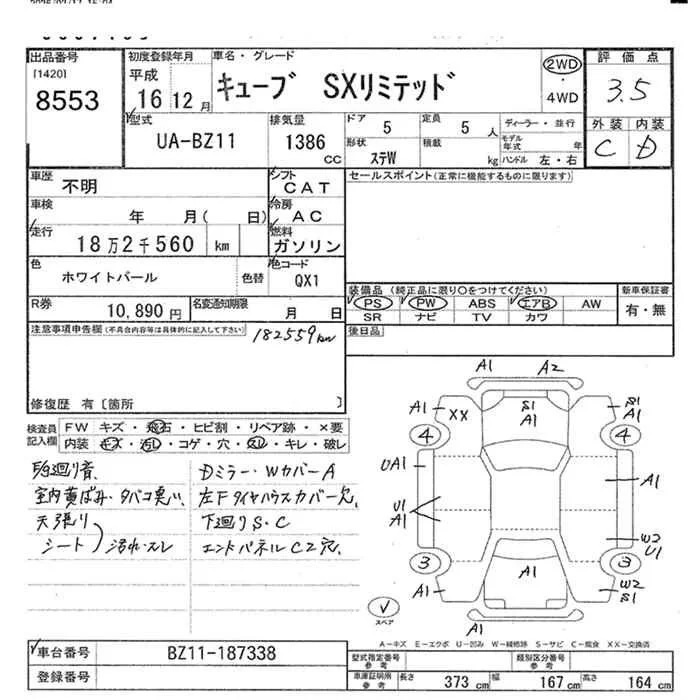 出品番号
[1420]
8553
初度登録年月
平成
16 12 月
車名・グレード
キューブ SXリミテッド
2WD
4WD
評価点
3.5
外装 内装
C D
型式
UA-BZ11
排気量
1386
CC
ドア
5
定員
5 人
形状
ステW
積載
kg
ディーラー・並行
モデル年式 年
ハンドル 左・右
車歴
不明
シフト
CAT
車検
年 月( 日)
冷房
AC
走行
18万2千560 km
燃料
ガソリン
色
ホワイトパール
色替
色コード
QX1
R券
10,890 円
名変通知期限
月 日
セールスポイント(正常に機能するものに限ります)
装備品(純正品に限り○をつけてください)
PS PW ABS エアB AW
SR ナビ TV カワ
新車保証書
有・無
後日品
注意事項申告欄(不具合内容等は具体的に記入して下さい)
182559km
修復歴 有〔箇所 〕
検査員記入欄
FW キズ・飛石・ヒビ割・リペア跡・×要
内装・キズ・汚れ・コゲ・穴・スレ・キレ・破レ
室内黄ばみ・タバコ臭い、
天張り
シート
汚れ・スレ
Dミラー・WカバーA
左Fタイヤハウスカバー欠、
下廻りS・C
エンドパネルC2穴、
A1 A2
A1 XX S1 A1 S1 A1
4 4
UA1 A1
U1 A1
W2 U1
3 3
A1 A1 W2 S1
A1
スペア
A-キズ E-エクボ U-凹み W-補修跡 S-サビ C-腐食 XX-交換済
車台番号
BZ11-187338
登録番号
型式指定番号
参考
類別区分番号
参考
車庫証明所
参考
長さ 373 cm 幅 167 cm 高さ 164 cm